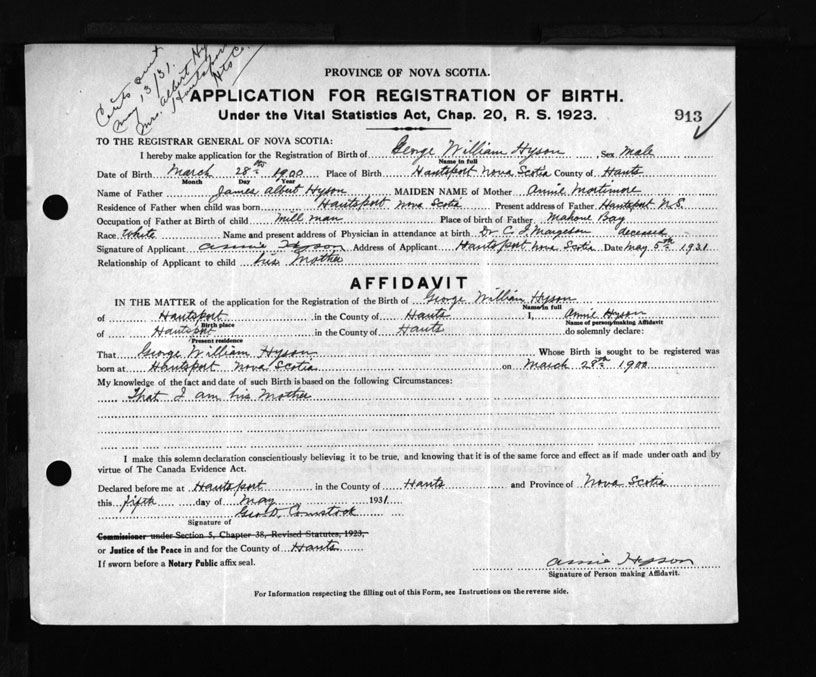 Certs sent
May 13/31.
Mrs. Albert Hy
Hantsport
Hts Co.
PROVINCE OF NOVA SCOTIA.
APPLICATION FOR REGISTRATION OF BIRTH.
Under the Vital Statistics Act, Chap. 20, R. S. 1923.
913
TO THE REGISTRAR GENERAL OF NOVA SCOTIA:
I hereby make application for the Registration of Birth of George William Hyson, Sex Male
Name in full
Date of Birth March 28th 1900 Place of Birth Hantsport Nova Scotia County of Hants
Month Day Year
Name of Father James Albert Hyson MAIDEN NAME of Mother Annie Mortimore
Residence of Father when child was born Hantsport Nova Scotia Present address of Father Hantsport N.S.
Occupation of Father at Birth of child Mill man Place of birth of Father Mahone Bay
Race White Name and present address of Physician in attendance at birth Dr C. I Margeson deceased
Signature of Applicant Annie Hyson Address of Applicant Hantsport Nova Scotia Date May 5th 1931
Relationship of Applicant to child his Mother
AFFIDAVIT
IN THE MATTER of the application for the Registration of the Birth of George William Hyson
Name in full
of Hantsport in the County of Hants I, Annie Hyson
Birth place Name of person making Affidavit
of Hantsport in the County of Hants do solemnly declare:
Present residence
That George William Hyson Whose Birth is sought to be registered was
born at Hantsport Nova Scotia on March 28th 1900
My knowledge of the fact and date of such Birth is based on the following Circumstances:
That I am his Mother
I make this solemn declaration conscientiously believing it to be true, and knowing that it is of the same force and effect as if made under oath and by
virtue of The Canada Evidence Act.
Declared before me at Hantsport in the County of Hants and Province of Nova Scotia
this fifth day of May 1931
Geo D. Comstock
Signature of
Commissioner under Section 5, Chapter 38, Revised Statutes, 1923,
or Justice of the Peace in and for the County of Hants
If sworn before a Notary Public affix seal.
Annie Hyson
Signature of Person making Affidavit.
For Information respecting the filling out of this Form, see Instructions on the reverse side.